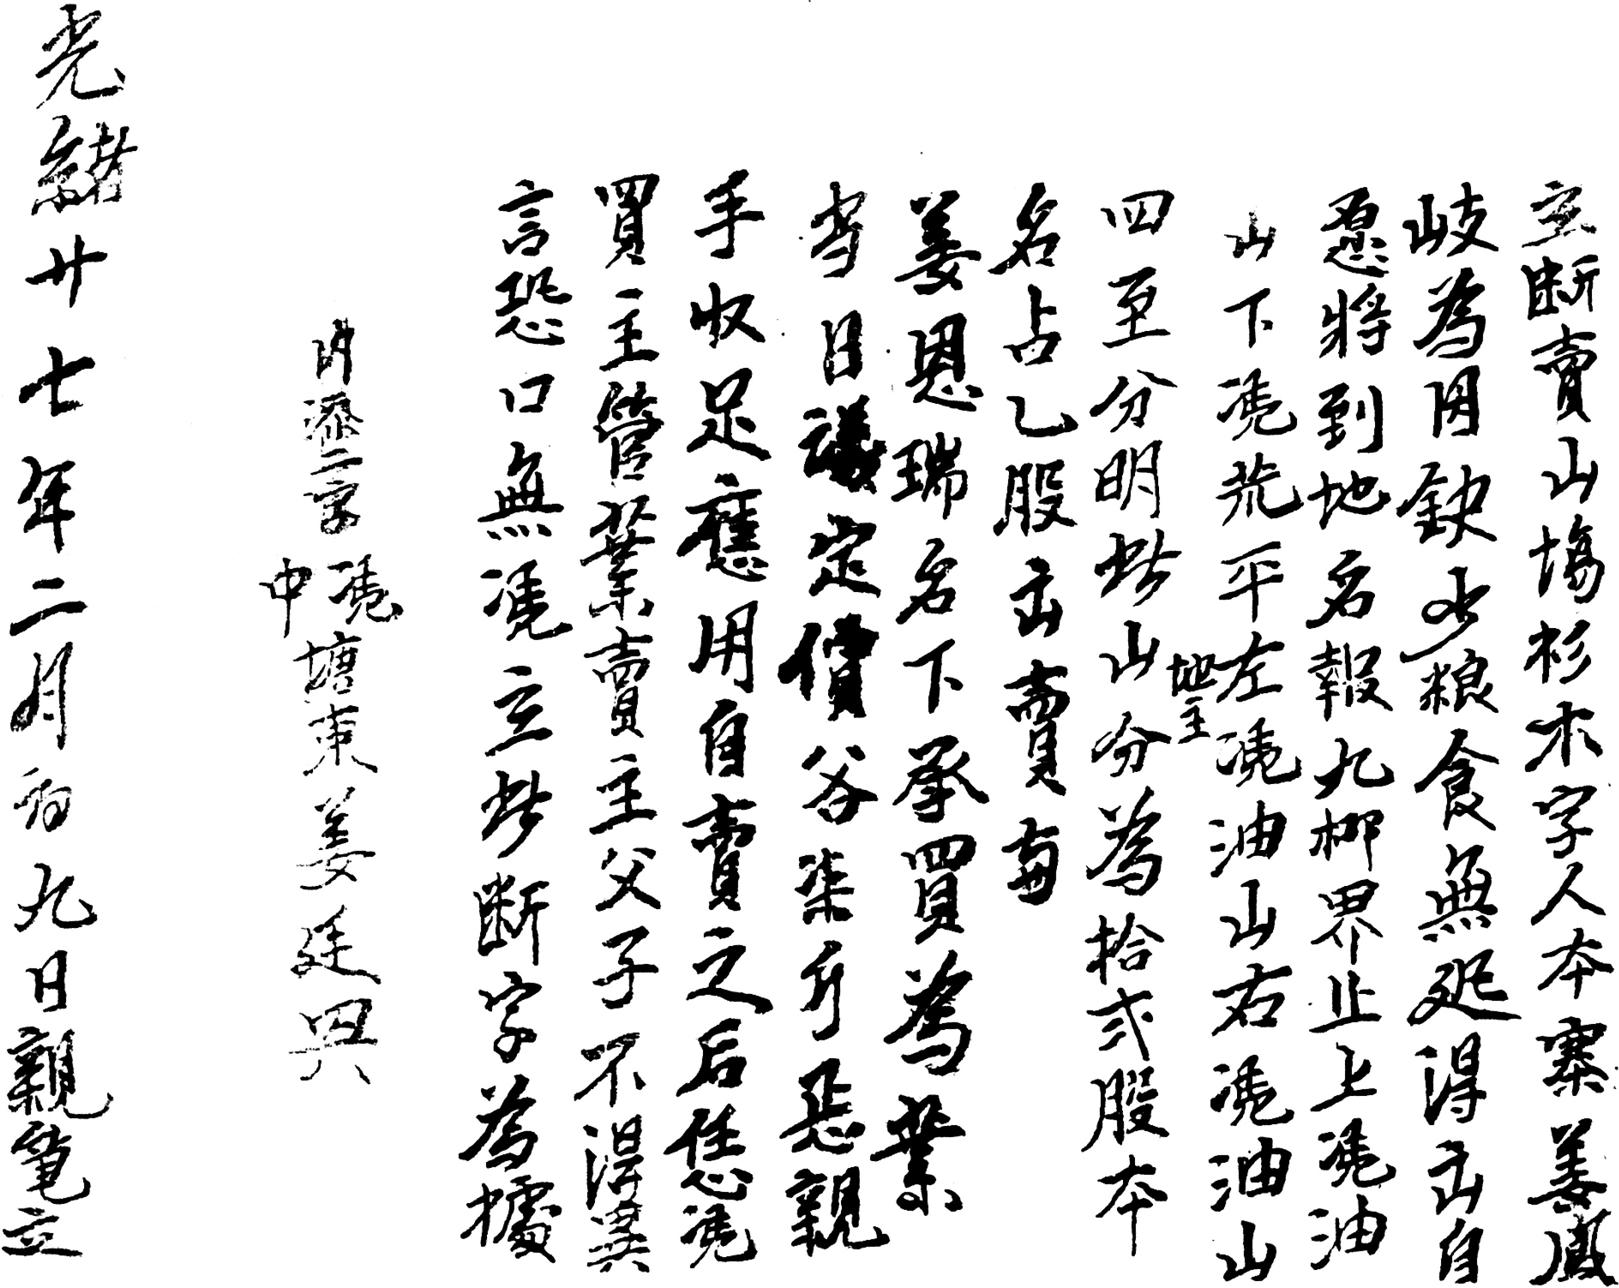 立断賣山塲杉木字人本寨姜鳳
岐為因缺少粮食無処得出自
愿將到地名報九柳界止上凴油
山下凴荒平左凴油山右凴油山
四至分明此山地主分為拾弍股本
名占乙股出賣與
姜恩瑞名下承買為業
当日議定價谷柒斤悉親
手收足應用自賣之后恁凴
買主管業賣主父子不得異
言恐口無凴立此断字為據
内添二字
凴中塘東姜廷興
光緒廿七年二月初九日親筆立